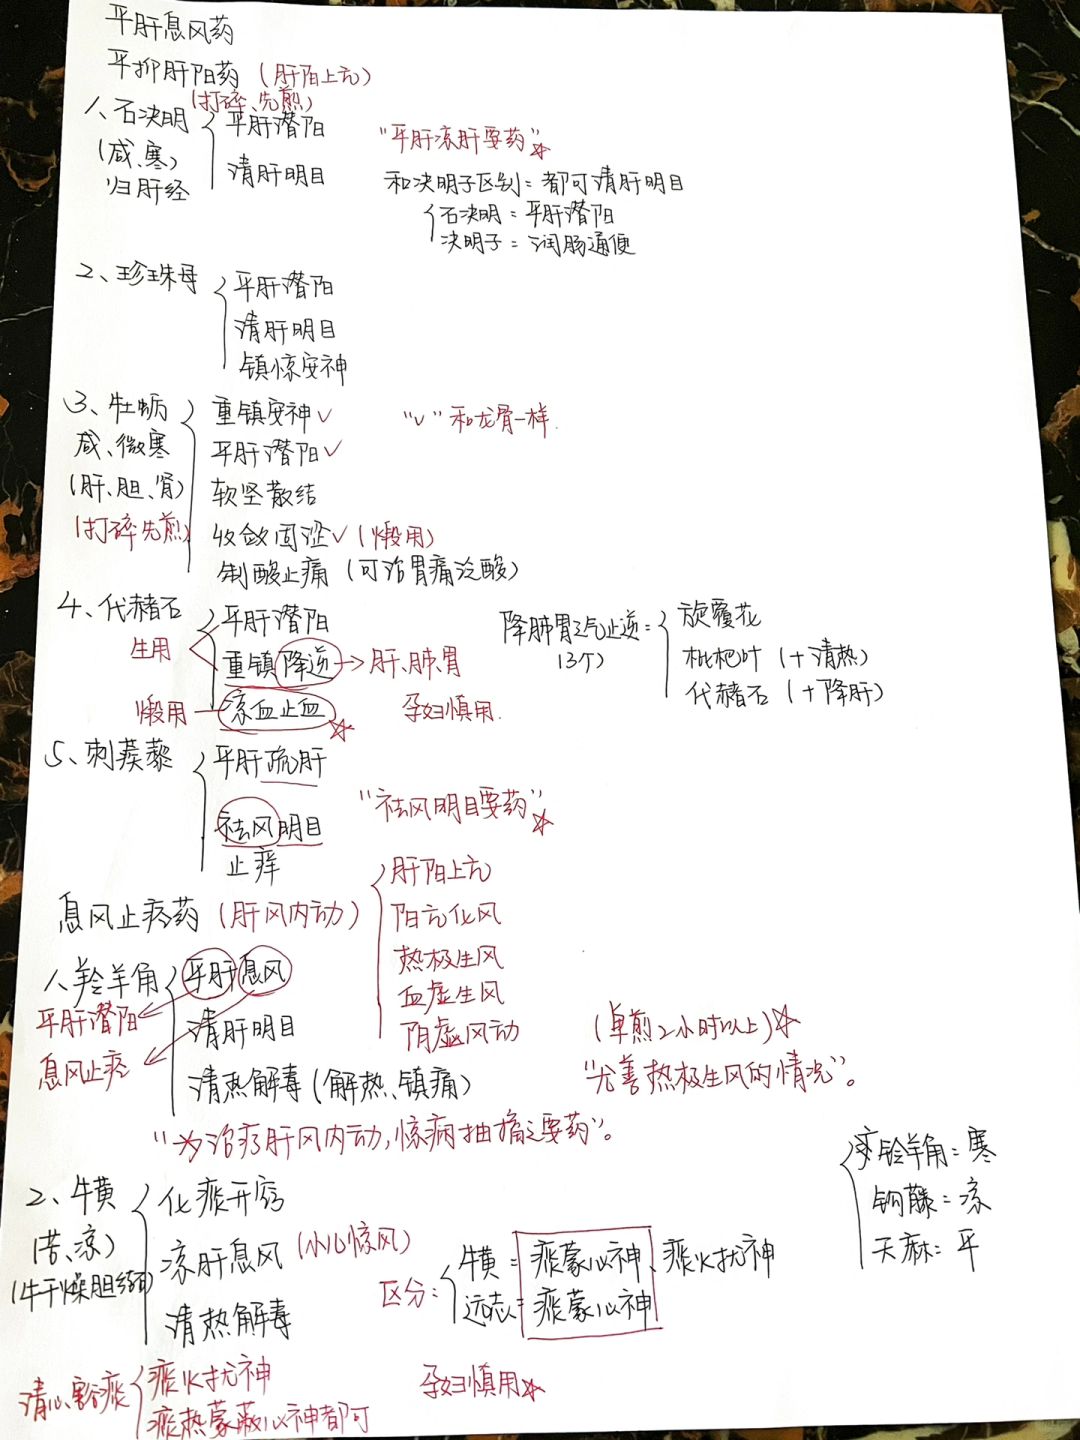 平肝息风药
平抑肝阳药（肝阳上亢）
1、石决明（打碎、先煎）
（咸、寒）
归肝经
平肝潜阳
清肝明目
"平肝凉肝要药"☆
和决明子区别=都可清肝明目
石决明=平肝潜阳
决明子=润肠通便
2、珍珠母
平肝潜阳
清肝明目
镇惊安神
3、牡蛎
咸、微寒
（肝、胆、肾）
（打碎先煎）
重镇安神✓
平肝潜阳✓
软坚散结
收敛固涩✓（煅用）
制酸止痛（可治胃痛泛酸）
"✓"和龙骨一样.
4、代赭石
生用
煅用
平肝潜阳
重镇降逆→肝、肺、胃
凉血止血☆
孕妇慎用.
降肺胃之气止逆=
（3个）
旋覆花
枇杷叶（+清热）
代赭石（+降肝）
5、刺蒺藜
平肝疏肝
祛风明目
止痒
"祛风明目要药"☆
息风止痉药（肝风内动）
肝阳上亢
阳亢化风
热极生风
血虚生风
阴虚风动
1、羚羊角
平肝息风
平肝潜阳
息风止痉
清肝明目
清热解毒（解热、镇痛）
（单煎2小时以上）☆
"尤善热极生风的情况"。
"为治疗肝风内动，惊痫抽搐之要药"。
羚羊角=寒
钩藤=凉
天麻=平
2、牛黄
（苦、凉）
（牛干燥胆结石）
化痰开窍
凉肝息风（小儿惊风）
清热解毒
区分:
牛黄=痰蒙心神、痰火扰神
远志=痰蒙心神
清心、豁痰
痰火扰神
痰热蒙蔽心神都可
孕妇慎用☆